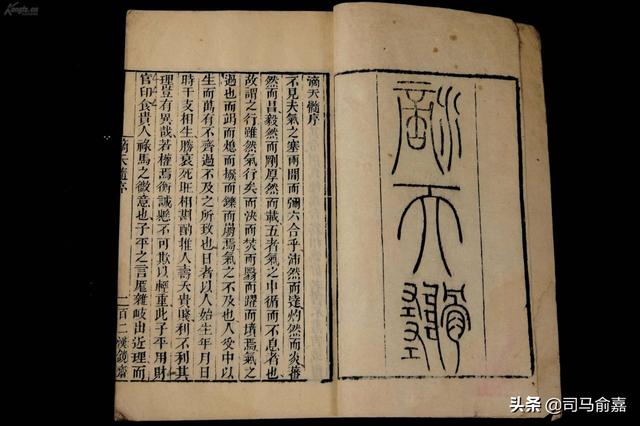 滴天髓
滴天髓序
不見夫氣之塞兩間而彌六合乎沛然而達灼然而炎蕃
然而昌毅然而剛厚然而載五者氣之中循而不息者也
故謂之行雖然氣行矣而決而焚而翳而躍而墳焉氣之
過也而竭而熄而而鑠而崩焉氣之不及也人受中以
生而萬有不齊過不及之所致也日者以人始生年月日
時干支相生勝衰死旺相斟酌推人壽夭貴賤利不利其
理豈有異哉若權焉衡誠懸不可欺以輕重此子平用財
官印食貴人祿馬之微意也子平之言厖雜歧出近理而
滴天髓序
一百二漢鏡齋
Kongfz.cn
头条 @司马俞嘉